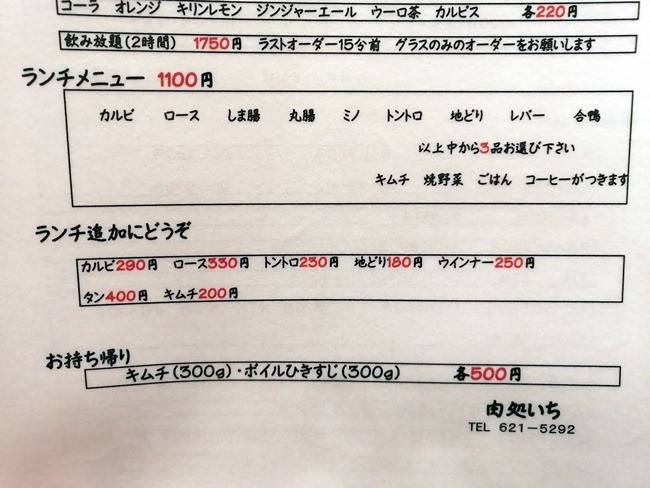 コーラ オレンジ キリンレモン ジンジャーエール ウーロ茶 カルピス 各220円
飲み放題(2時間) 1750円 ラストオーダー15分前 グラスのみのオーダーをお願いします
ランチメニュー 1100円
カルビ ロース しま腸 丸腸 ミノ トントロ 地どり レバー 合鴨
以上中から3品お選び下さい
キムチ 焼野菜 ごはん コーヒーがつきます
ランチ追加にどうぞ
カルビ290円 ロース330円 トントロ230円 地どり180円 ウインナー250円
タン400円 キムチ200円
お持ち帰り
キムチ(300g)・ボイルひきすじ(300g) 各500円
肉処いち
TEL 621-5292